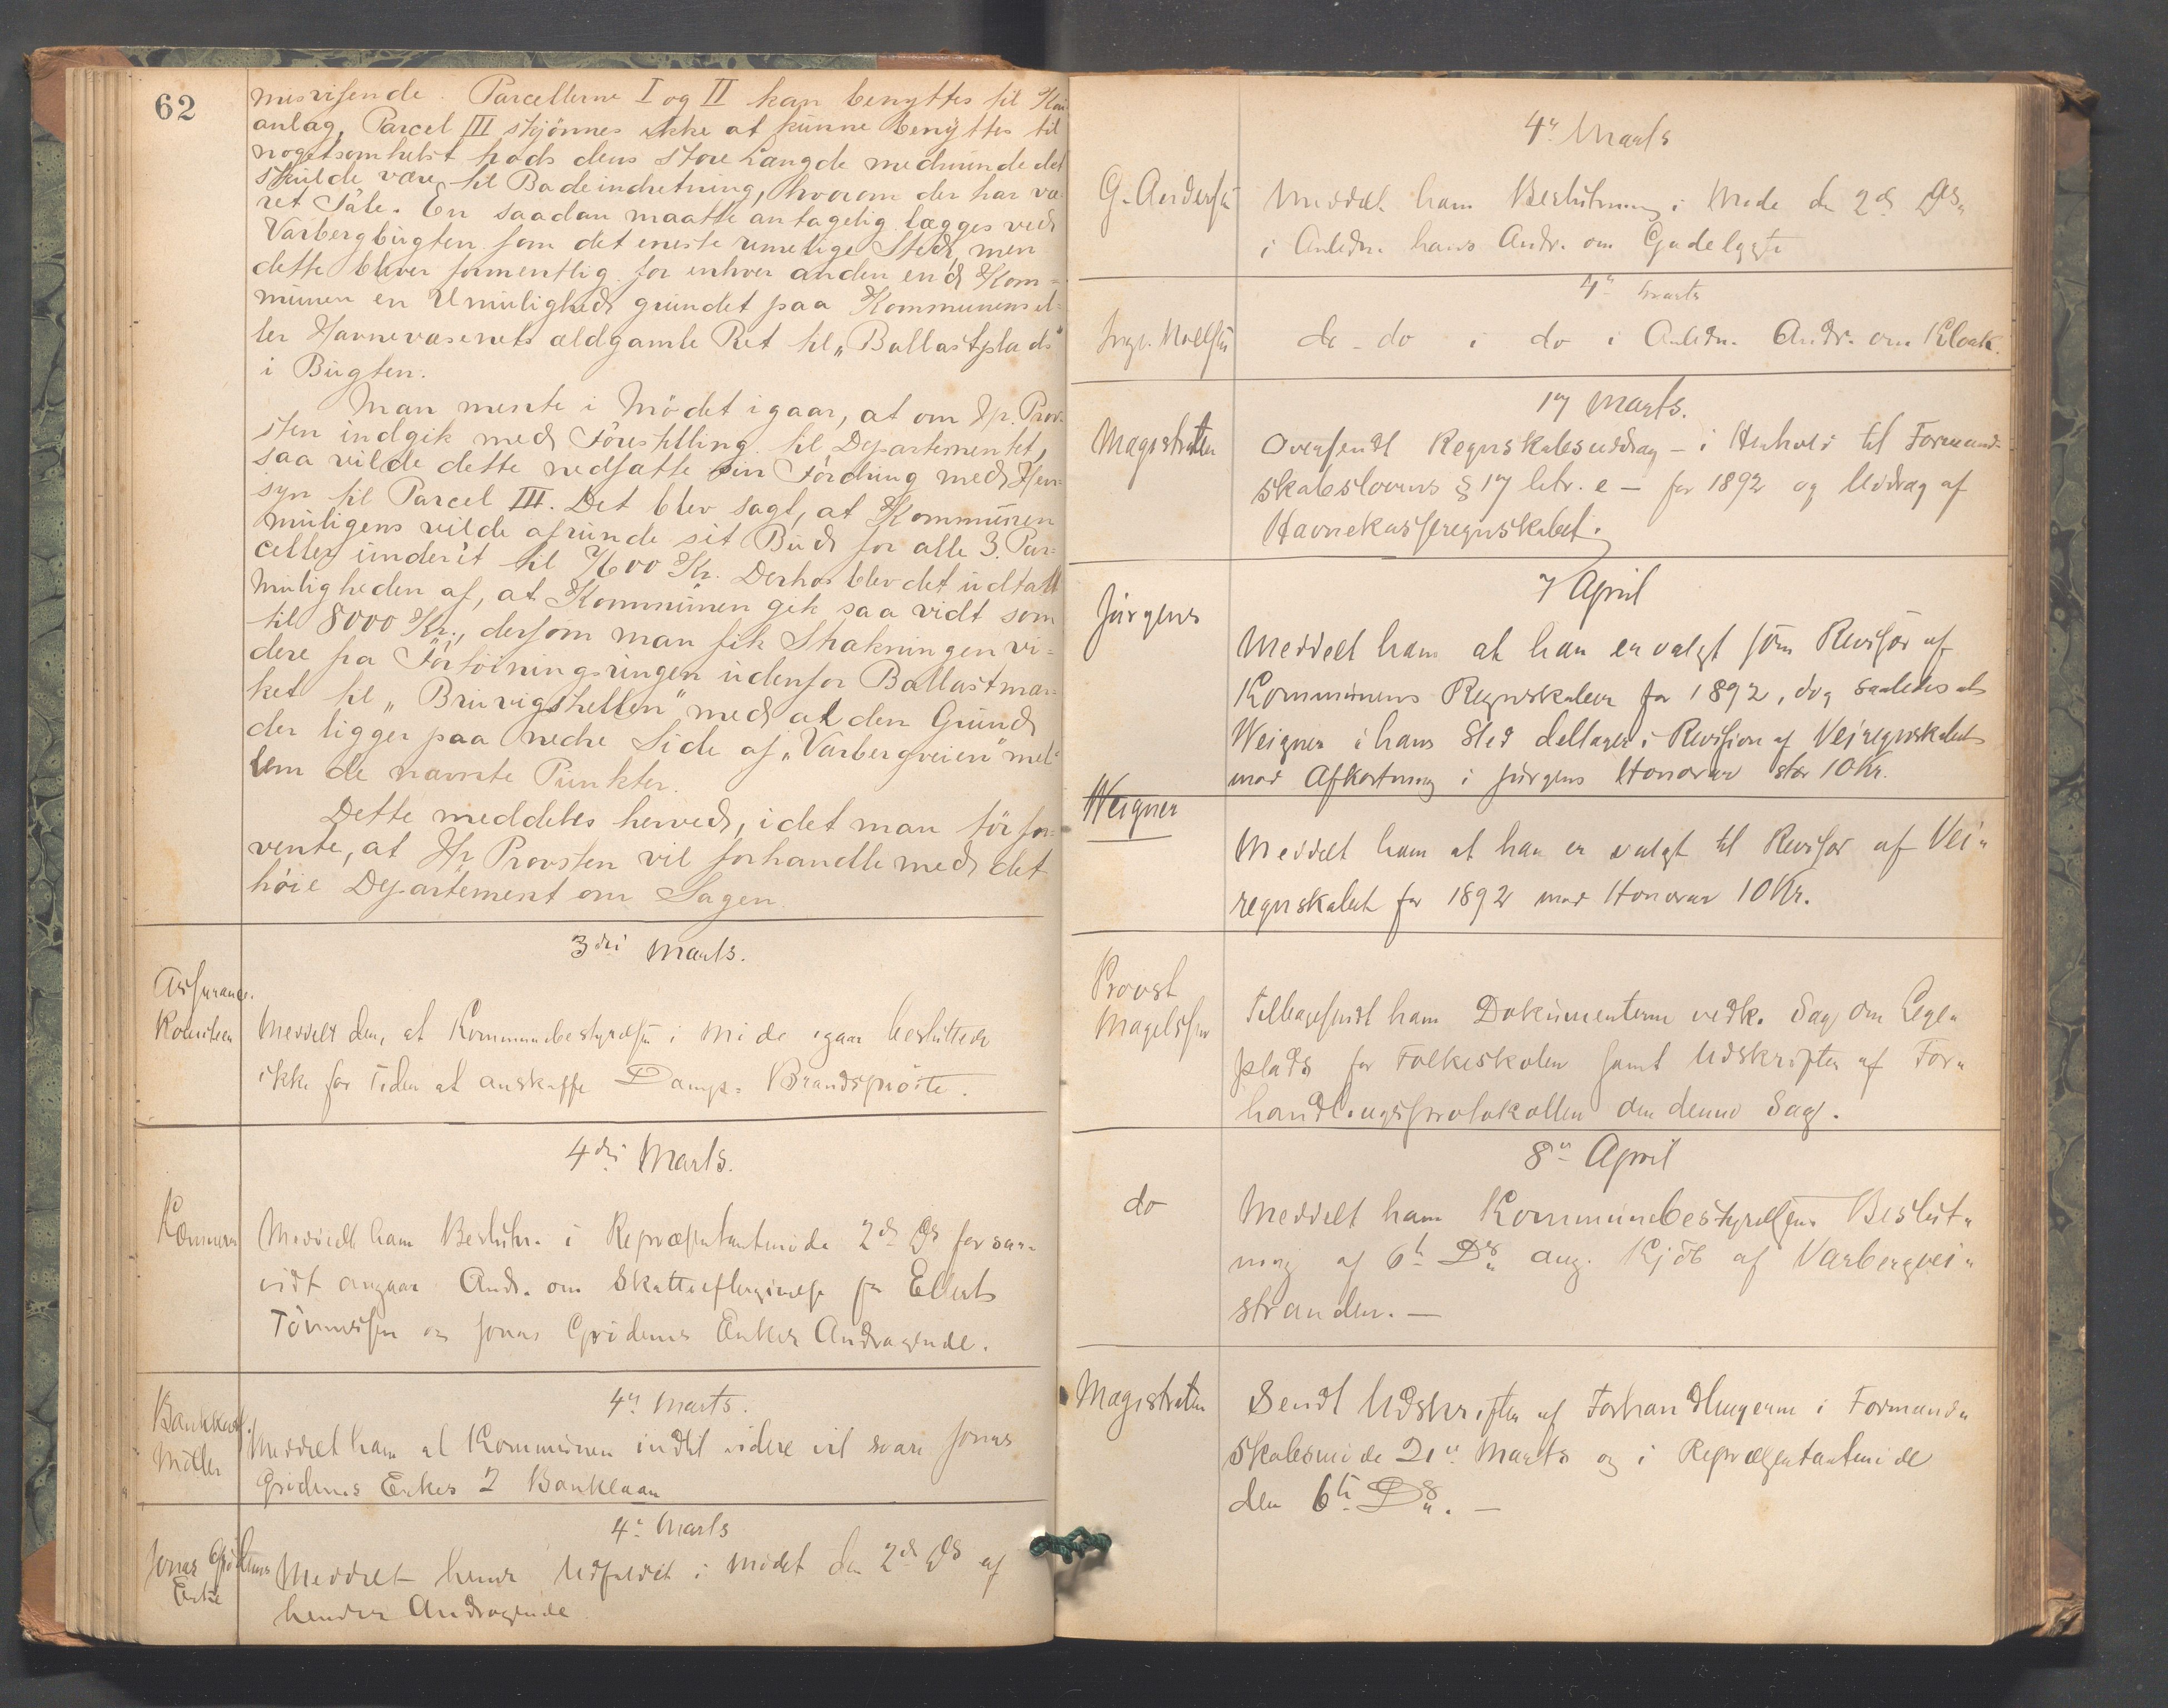 62
misvisende. Parcellerne I og II kan benyttes til Kai-
anlæg, Parcel III skjönnes ikke at kunne benyttes til
nogetsomhelst trods dens store Længde medminde det
skulde være til Badeindretning, hvorom der har væ
ret Tale. En saadan maatte antagelig lægges ved
Varbergbugten som det eneste rimelige Sted, men
dette bliver formentlig for enhver anden end Kom=
munen en Umulighed grundet paa Kommunens el-
ler Havnevæsenets ældgamle Ret til "Ballastplads"
i Bugten.
Man mente i Mödet igaar, at om Hr. Prov-
sten indgik med Forestilling til Departementet,
saa vilde dette nedsætte sin Fordring med Hen-
syn til Parcel III. Det blev sagt, at Kommunen
muligens vilde afrunde sit Bud for alle 3 Par=
celler underet til 7600 Kr. Derhos blev det udtalt
Muligheden af, at Kommunen gik saa vidt som
til 8000 Kr., dersom man fik Strækningen vi=
dere fra Fortöiningsringen udenfor Ballastmær-
ket til "Bruvigshellen" med al den Grund
der ligger paa nedre Side af "Varbergveien" mel-
lem de nævnte Punkter.
Dette meddeles herved, idet man tör for-
vente, at Hr. Provsten vil forhandle med det
höie Departement om Sagen.
3die Marts.
Assurance-
Komiteen
Meddelt den, at Kommunebestyrelsen i Møde igaar besluttede
ikke for Tiden at anskaffe Damp-Brandspröite.
4die Marts.
Kæmneren
Meddelt ham Beslutn. i Repræsentantmöde 2d Ds forsaa-
vidt angaar Andr. om Skatteeftergivelse fra Ellert
Tönnessen og Jonas Grödems Enkes Andragende.
4" Marts.
Bankkass.
Möller
Meddelt ham at Kommunen indtil videre vil svare Jonas
Grödems Enkes 2 Banklaan
4" Marts
Jonas Grödems
Enke
Meddelt hende Udfaldet i Mödet den 2d Ds af
hendes Andragende
4" Marts
G. Andersen
Meddelt ham Beslutning i Møde den 2d Ds.
i Anledn. hans Andr. om Gadelygte
4" Marts
do - do i do i Anledn. Andr. om Kloak.
17 Marts.
Magistraten
Oversendt Regnskabsuddrag - i Henhold til Formand-
skabslovens § 17 litr. e - for 1892 og Uddrag af
Havnekasseregnskabet.
7 April
Jürgens
Meddelt ham at han er valgt som Revisor af
Kommunens Regnskaber for 1892, dog saaledes at
Weigner i hans Sted deltager i Revision af Veiregnskabet
mod Afkortning i Jürgens Honorar stor 10 Kr.
Weigner
Meddelt ham at han er valgt til Revisor af Vei-
regnskabet for 1892 mod Honorar 10 Kr.
Provst
Magelssen
Tilbagesendt ham Dokumenterne vedk. Sag om Lege-
plads for Folkeskolen samt Udskrifter af For-
handlingsprotokollen om denne Sag.
8" April
do
Meddelt ham Kommunebestyrelsens Beslut-
ning af 6te Ds. ang. Kjöb af Varbergvei-
stranden. -
Magistraten
Sendt Udskrifter af Forhandlingerne i Formand-
skabsmöde 21" Marts og i Repræsentantmöde
den 6te Ds. -